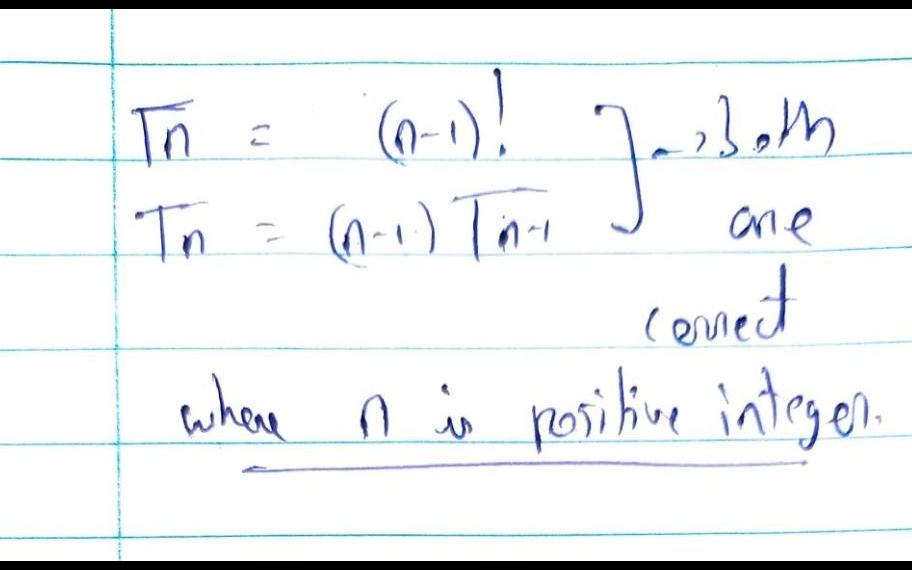 Γn = (n-1)! ] → Both
Γn = (n-1) Γn-1 are
correct
where n is positive integer.